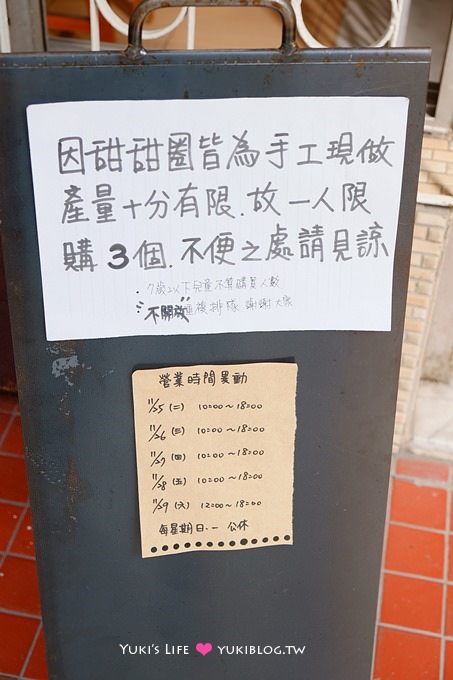 因甜甜圈皆為手工現做
產量十分有限.故一人限
購3個.不便之處請見諒
·7歲以下兒童不算購買人數
不開放重複排隊 謝謝大家
營業時間異動
11/25 (二) 10:00~18:00
11/26 (三) 10:00~18:00
11/27 (四) 10:00~18:00
11/28 (五) 10:00~18:00
11/29 (六) 12:00~18:00
每星期日.一 公休
YUKI'S LIFE YUKIBLOG.TW